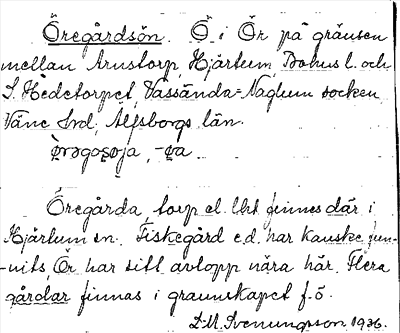 Öregårdsön. Ö i Ör på gränsen
mellan Arnstorp, Hjärtum, Bohus l. och
S. Hedetorpet, Vassända-Naglum socken
Väne hrd, Älfsborgs län.
-öa
Öregårda, torp el. lht finnes där i
Hjärtum sn. Fiskegård e.d. har kanske fun-
nits, Ör har sitt avlopp nära här. Flera
gårdar finnas i grannskapet f.ö.
D.M. Svenungson 1936.